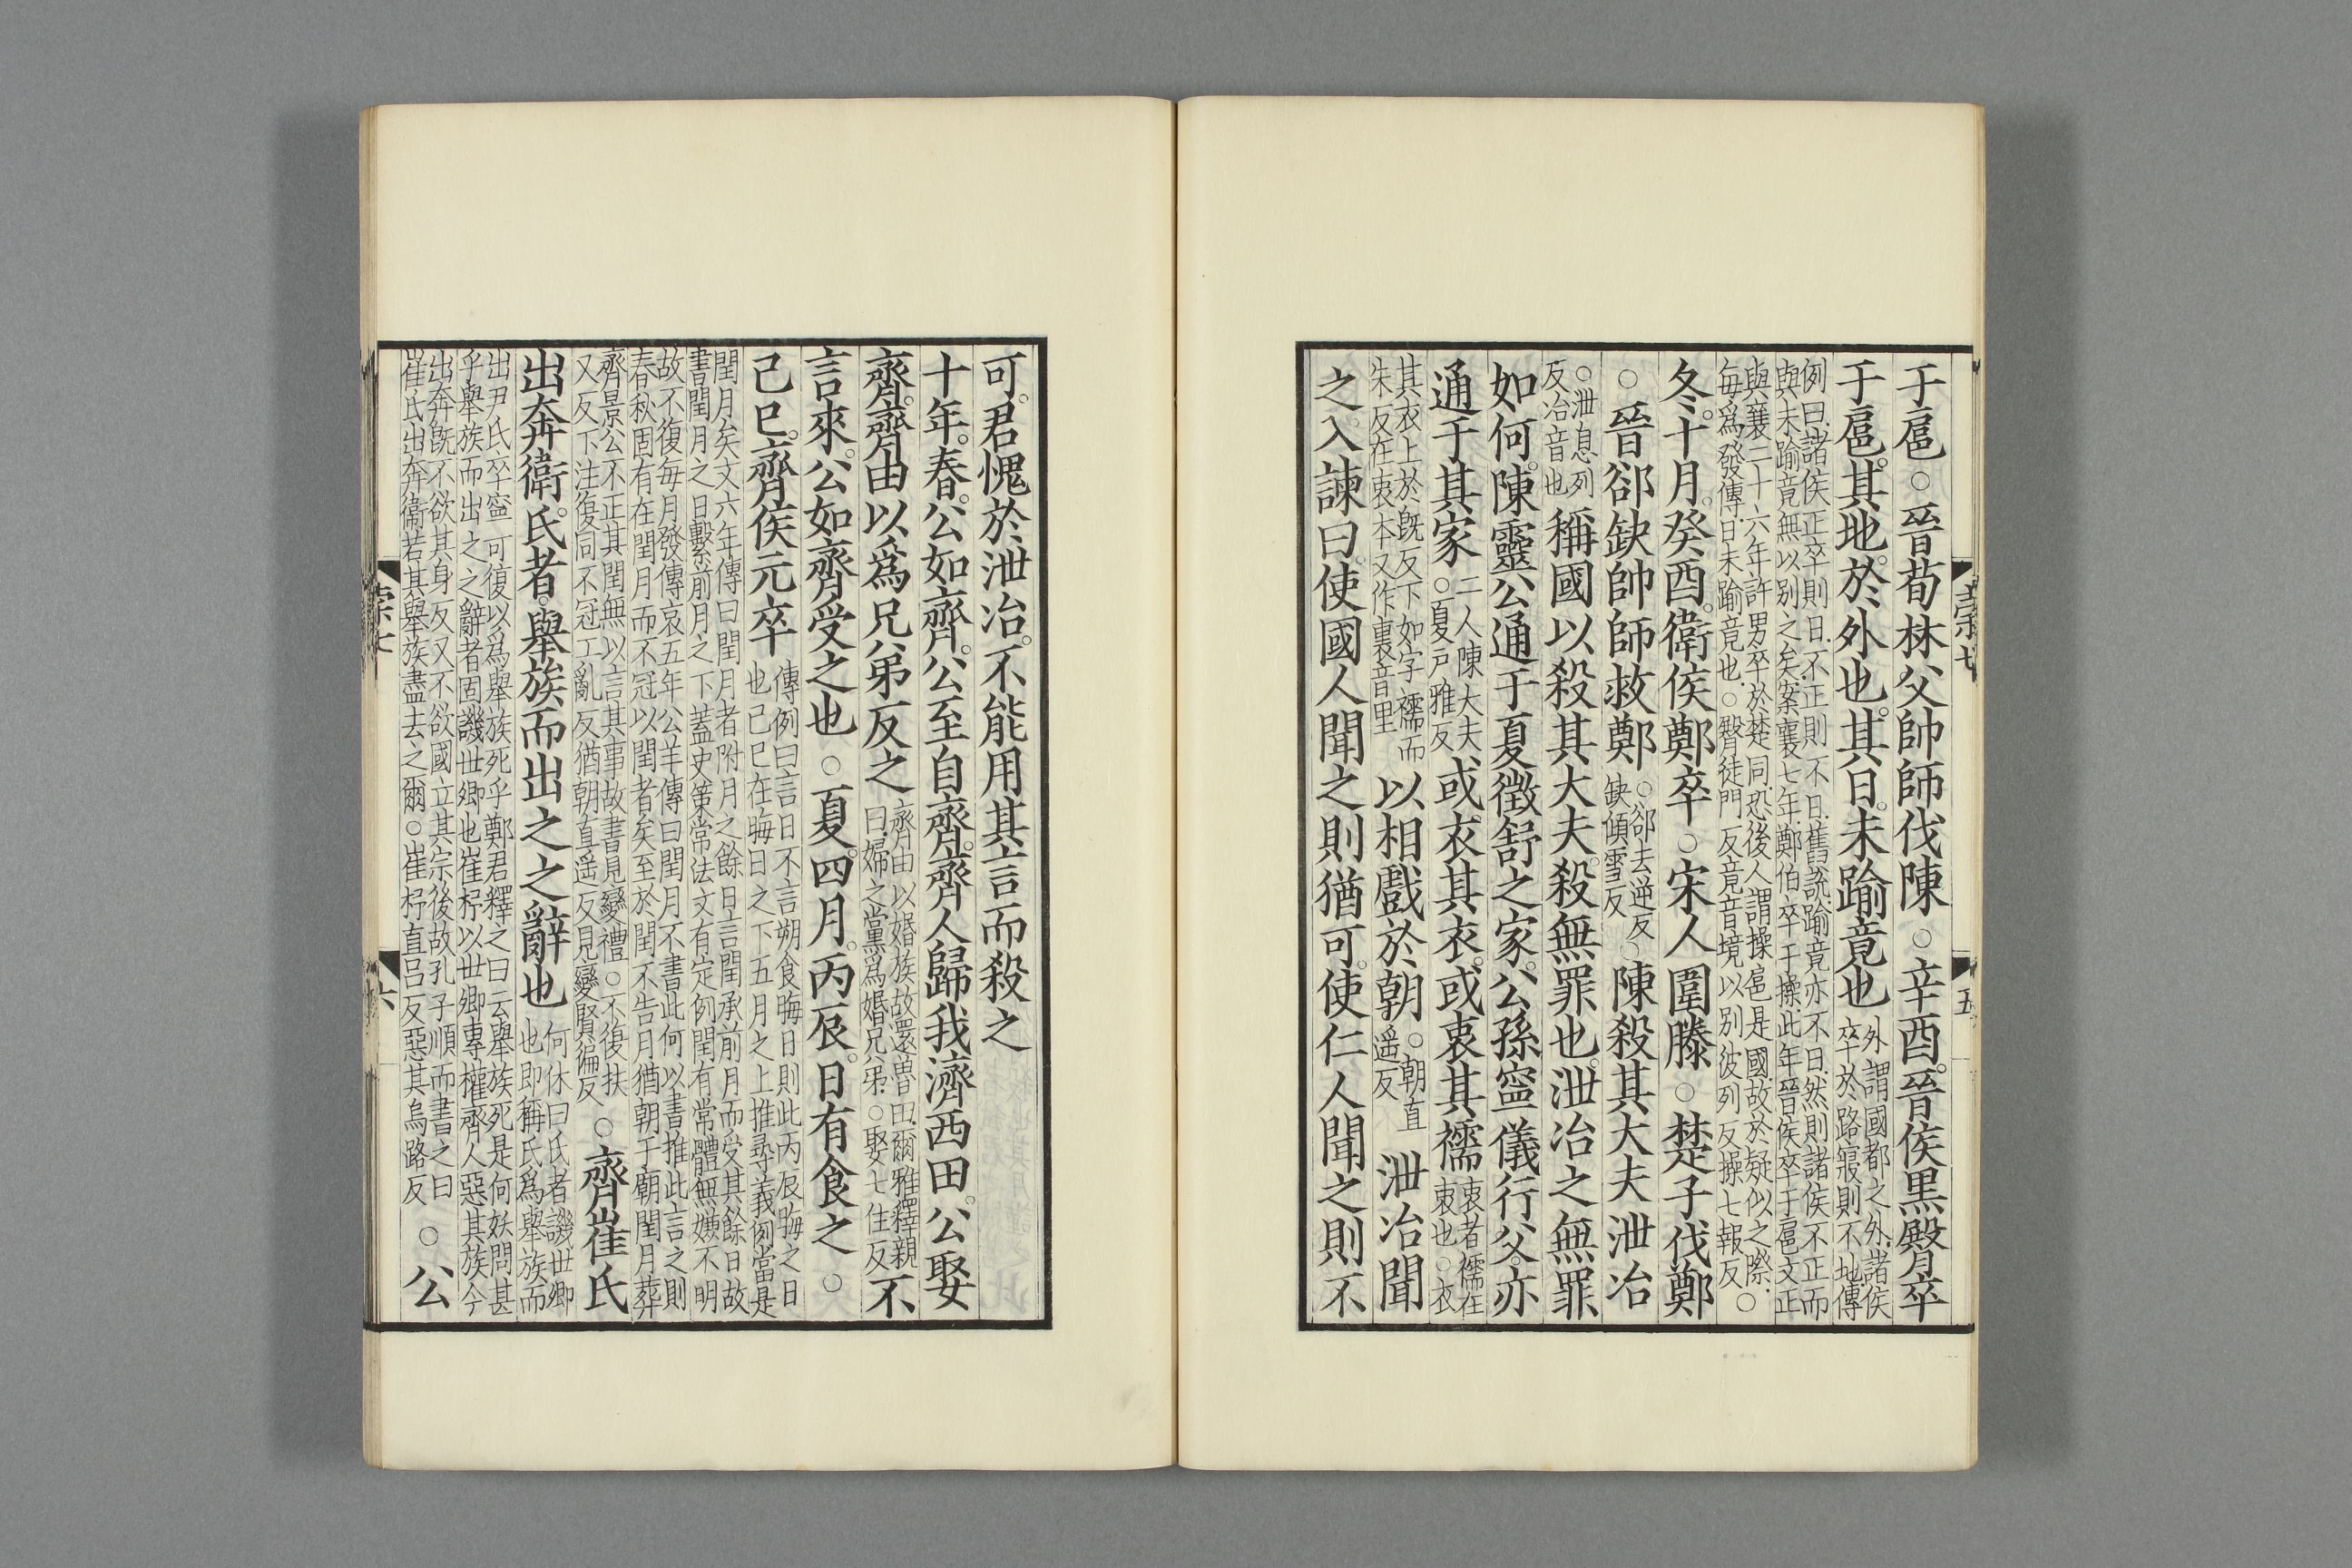 于扈○晉荀林父帥師伐陳○辛酉晉侯黑臀卒
于扈其地於外也其日未踰竟也外謂國都之外諸侯卒於路寢則不地傳
例曰諸侯正卒則日不正則不日舊說踰竟亦不日然則諸侯不正而
與未踰竟無以別之矣案襄七年鄭伯卒于操此年晉侯卒于扈文正
與襄二十六年許男卒於楚同恐後人謂操扈是國故於疑似之際
每爲發傳曰未踰竟也○臀徒門反竟音境以別彼列反操七報反○
冬十月癸酉衛侯鄭卒○宋人圍滕○楚子伐鄭
○晉郤缺帥師救鄭○郤去逆反缺傾雪反○陳殺其大夫泄冶
○泄息列反冶音也稱國以殺其大夫殺無罪也泄冶之無罪
如何陳靈公通于夏徵舒之家公孫寍儀行父亦
通于其家二人陳大夫○夏戸雅反或衣其衣或衷其襦衷者襦在衷也○衣
其衣上於旣反下如字襦而朱反在衷本又作裏音里以相戲於朝○朝直遥反泄冶聞
之入諫曰使國人聞之則猶可使仁人聞之則不
宗七
五
可君愧於泄冶不能用其言而殺之
十年春公如齊公至自齊齊人歸我濟西田公娶
齊齊由以爲兄弟反之齊由以婚族故還魯田爾雅釋親曰婦之黨爲婚兄弟○娶七住反不
言來公如齊受之也○夏四月丙辰日有食之○
己巳齊侯元卒傳例曰言日不言朔食晦日則此丙辰晦之日也己巳在晦日之下五月之上推尋義例當是
閏月矣文六年傳曰閏月者附月之餘日言閏承前月而受其餘日故
書閏月之日繫前月之下蓋史策常法文有定例閏有常體無嫌不明
故不復每月發傳哀五年公羊傳曰閏月不書此何以書推此言之則
春秋固有在閏月而不冠以閏者矣至於閏不告月猶朝于廟閏月葬
齊景公不正其閏無以言其事故書見變禮○不復扶
又反下注復同不冠工亂反猶朝直遥反見變賢徧反○齊崔氏
出奔衛氏者舉族而出之之辭也何休曰氏者譏世卿也即稱氏爲舉族而
出尹氏卒寍可復以爲舉族死乎鄭君釋之曰云舉族死是何妖問甚
乎舉族而出之之辭者固譏世卿也崔杼以世卿專權齊人惡其族令
出奔旣不欲其身反又不欲國立其宗後故孔子順而書之曰
崔氏出奔衞若其舉族盡去之爾○崔杼直呂反惡其烏路反○公
宗七
六